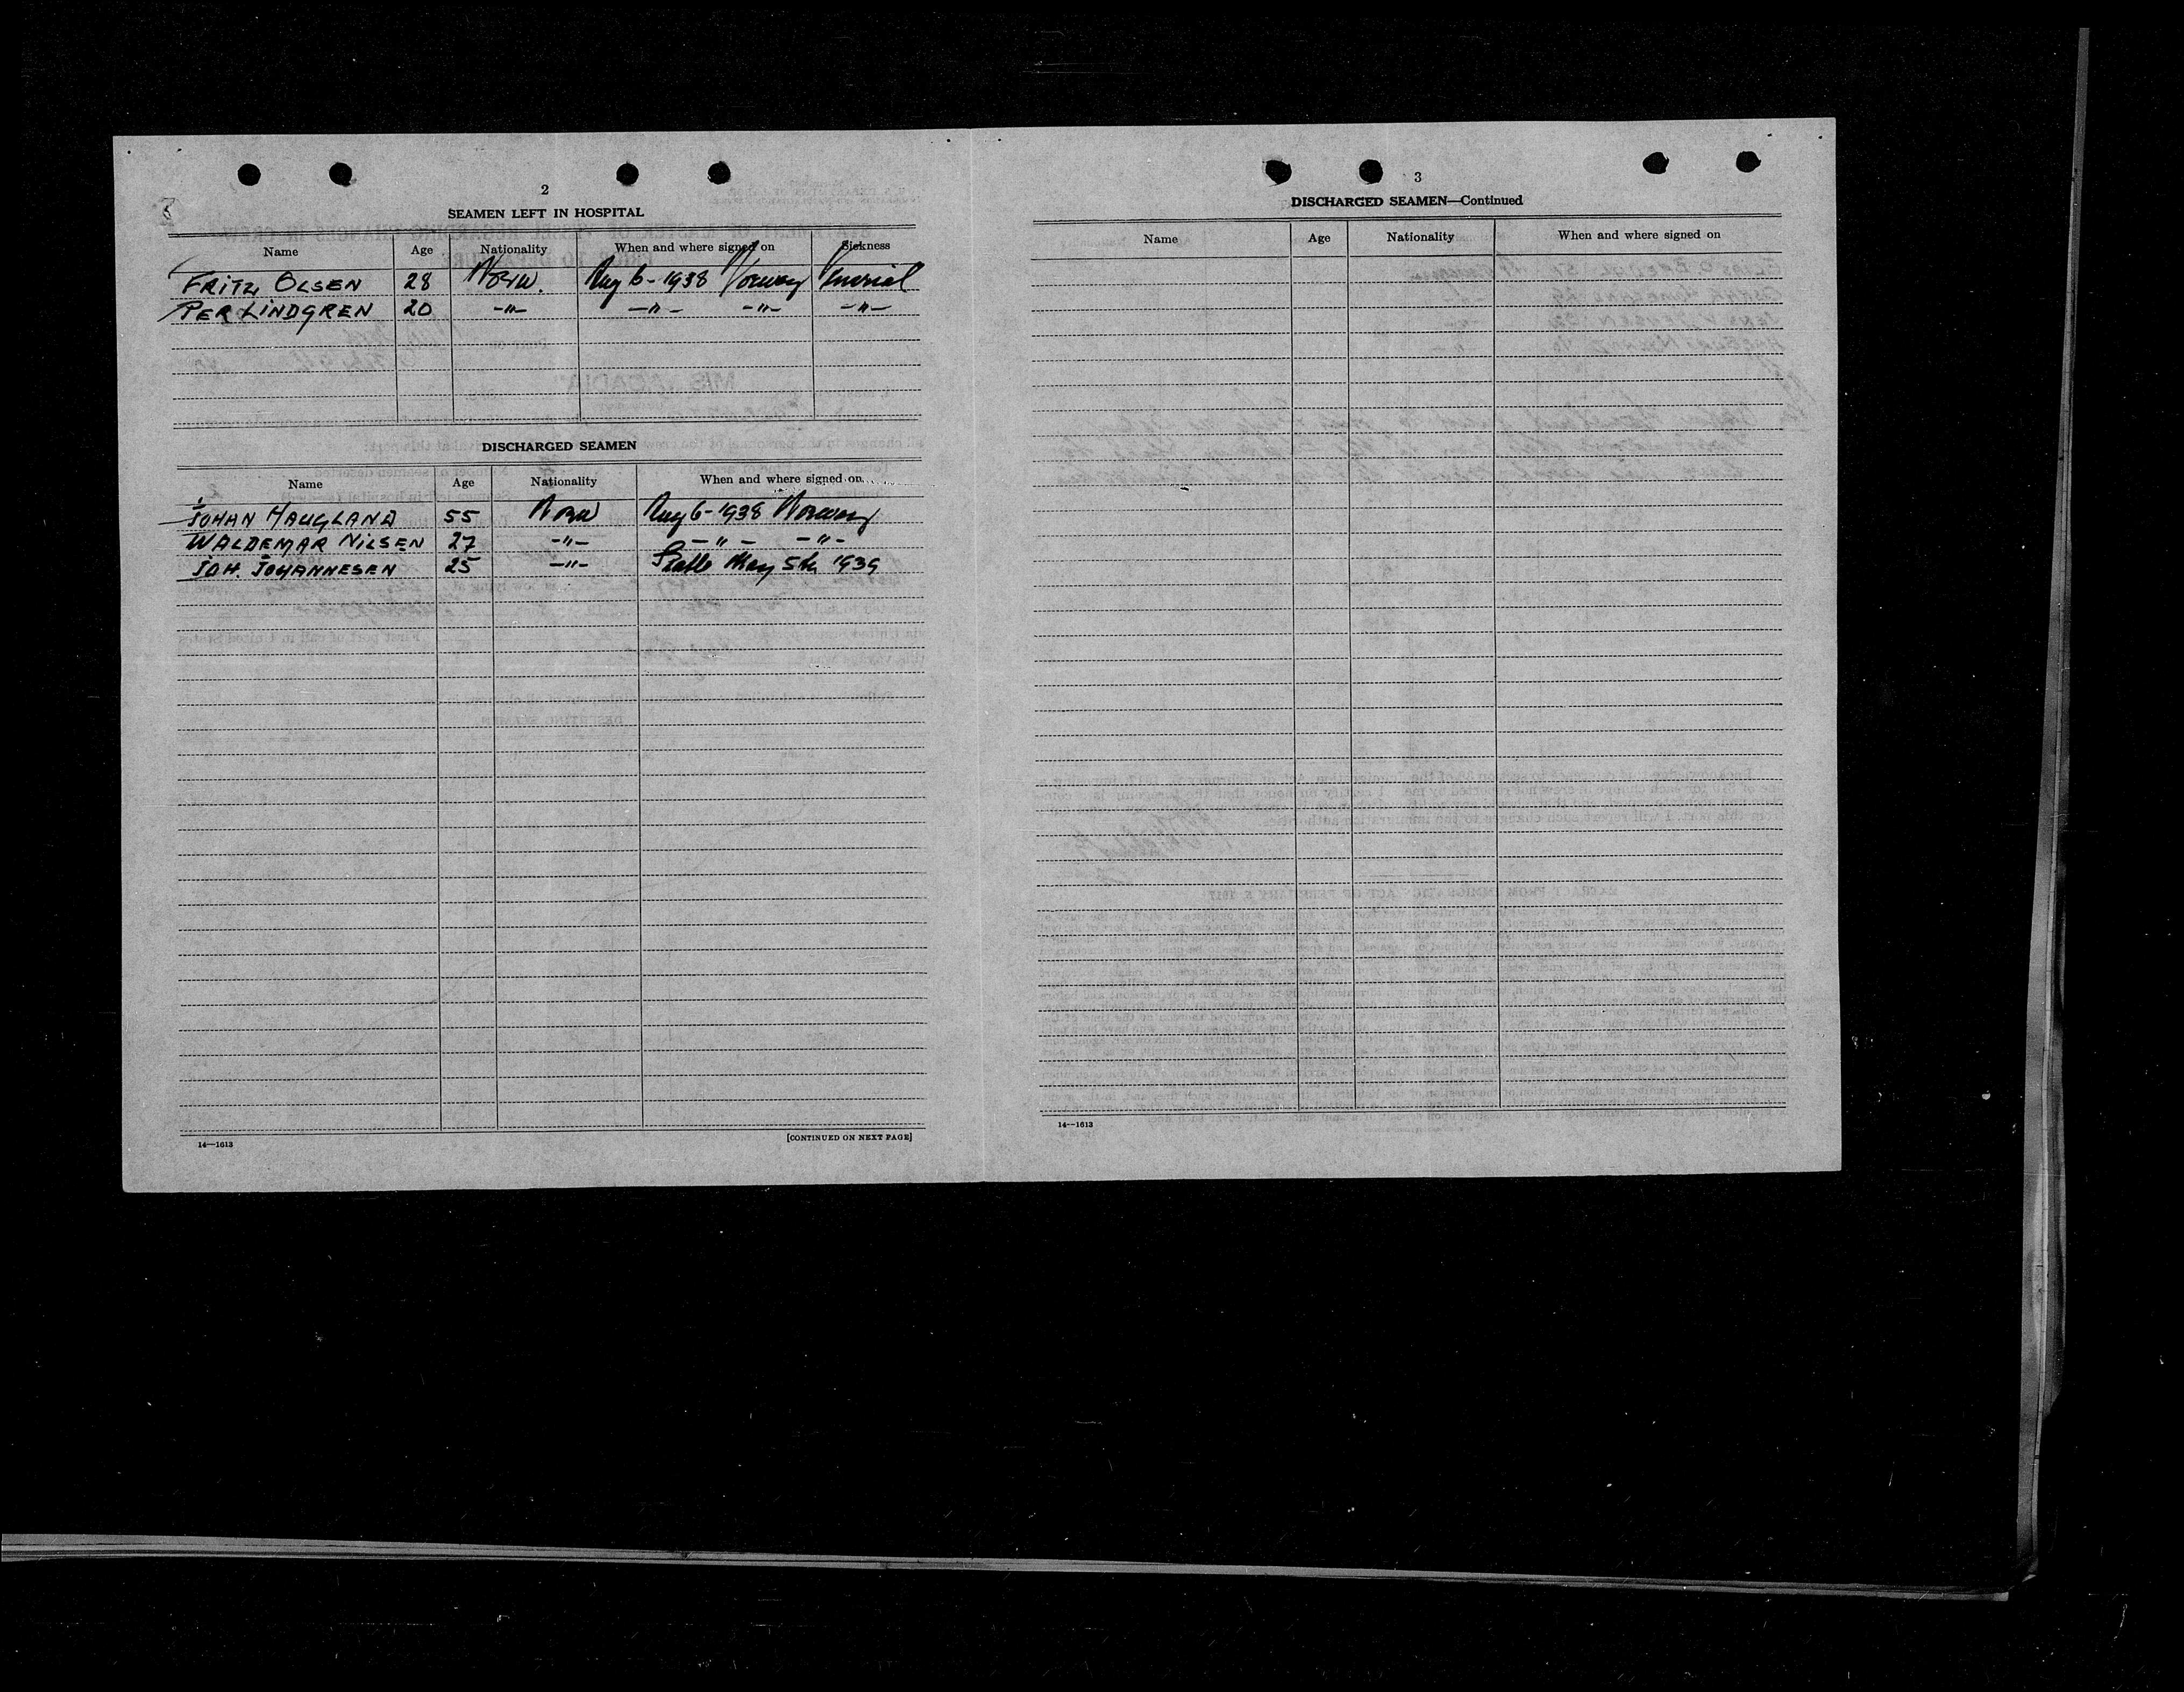 2
SEAMEN LEFT IN HOSPITAL
Name Age Nationality When and where signed on Sickness
FRITZ OLSEN 28 Norw. Aug 6-1938 Norway
PER LINDGREN 20 -"- -"- -"- -"-
DISCHARGED SEAMEN
Name Age Nationality When and where signed on
JOHAN HAUGLAND 55 Norw Aug 6-1938 Norway
WALDEMAR NILSEN 27 -"- -"- -"-
JOH. JOHANNESEN 25 -"- May 5th 1939
14—1613
[CONTINUED ON NEXT PAGE]
3
DISCHARGED SEAMEN—Continued
Name Age Nationality When and where signed on
14—1613